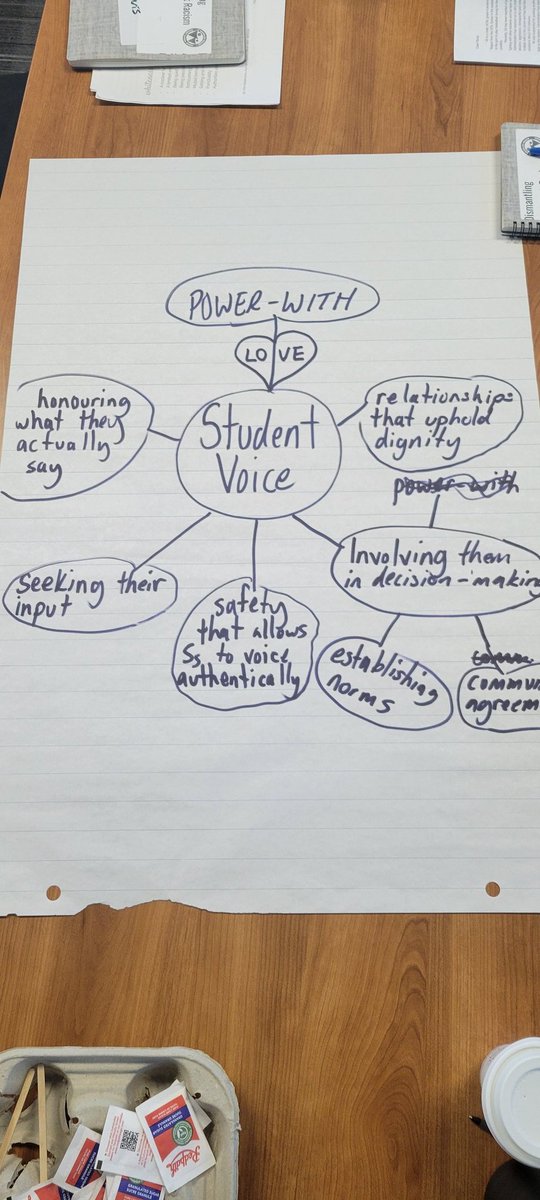 Racism
POWER-WITH
LO VE
Student
Voice
honouring
what they
actually
say
relationships
that uphold
dignity
power-with
Seeking their
input
safety
that allows
Ss to voice
authentically
Involving them
in decision-making
establishing
norms
commun
agreem
Dismantling
Redpath